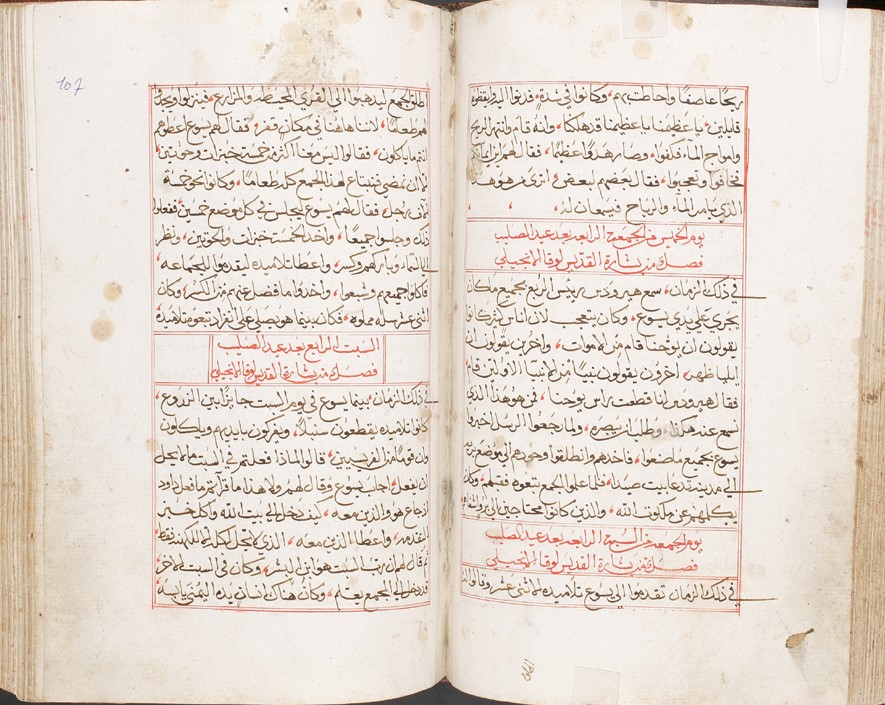 ريحًا عاصفًا واحاطت بهم، وكانوا في شدة، فدنوا اليه وايقظوه
قايلين، يا عظيمنا يا عظيمنا قد هلكنا، وانه قام وانتهر الريح
وامواج الماء فكفوا، وصار هدوًا عظيمًا، فقال لهم اين ايمانكم
فخافوا وتعجبوا، فقال بعضهم لبعض، اترى من هو هذا
الذي يامر الماء والرياح فتيعان له،
يوم الخميس من الجمعة الرابعه بعد عيد الصليب
فصل من بشارة القديس لوقا الانجيلي
في ذلك الزمان، سمع هيرودس رييس الربع بجميع ماكان
يجري على يدي يسوع، وكان يتعجب لان اناس كثير كانوا
يقولون ان يوحنا قام من الاموات، واخرين يقولون ان
ايليا ظهر، اخرون يقولون نبيًا من الانبيا الاولين قام
فقال هيرودس انا قطعت راس يوحنا، فمن هو هذا الذي
نسمع عنه هكذا، وطلب ان يبصره، ولما رجعوا الرسل اخبروا
يسوع بجميع ماصنعوا، فاخدهم وانطلقوا وحدهم الى موضع بريه
الى مدينه تدعا بيت صيدا، فلما علموا الجمع تبعوه فقبلهم، وكان
يكلمهم عن ملكوت الله، والذين كانوا محتاجين الى برو اشفاهم
يوم الجمعه من السبه الرابعه بعد عيد الصليب
فصل من بشارة القديس لوقا الانجيلي
في ذلك الزمان تقدموا الى يسوع تلاميذه الاثنى عشر وقالوا له
اطلق
107
اطلق الجمع ليذهبوا الى القرى المحيطه والمزارع، فينزلوا ويجدوا
لهم طعامًا، لاننا هاهنا في مكان قفر، فقال لهم يسوع اعطوهم
انتم ما ياكلون، فقالوا ليس معنا اكثر من خمسة خبزات وحوتين،
الا ان نمضي فنبتاع لهذا الجمع كله طعامًا، وكانوا نحو خمسة
الاف رجل، فقال لهم يسوع يجلس في كل موضع خمسين، ففعلوا
ذلك وجلسوا جميعًا، واخد الخمسة خبزات والحوتين، ونظر
الى السماء وباركهم وكسر، واعطا تلاميذه ليقدموا للجماعه
فاكلوا جميعهم وشبعوا، واخدوا ما فضل عنهم من الكسر، وكان
اثنى عشر سله مملوه، فكان بينما هو يصلي على انفراد تبعوه تلاميذه
السبت الرابع بعد عيد الصليب
فصل من بشارة القديس لوقا الانجيلي
في ذلك الزمان، بينما يسوع في يوم السبت جايزًا بين الزروع
كانوا تلاميذه يقطعون سنبلاً، ويفركون بايديهم وياكلون
وان قومًا من الفريسيين، قالوا لماذا فعلتم في السبت ما لا يحل
ان يفعل، اجاب يسوع وقال لهم ولا هذا ما قراتم ما فعل داود
اذ جاع هو والذين معه، كيف دخل الى بيت الله واكل خبز
التقدمه، واعطا الذين معه، الذي لا يحل اكله الا للكهنه فقط
ثم قال لهم ان رب السبت هو ابن البشر، وكان في السبت الاخر
قد دخل الى المجمع يعلم، وكان هناك انسان يده اليمنى يابسه